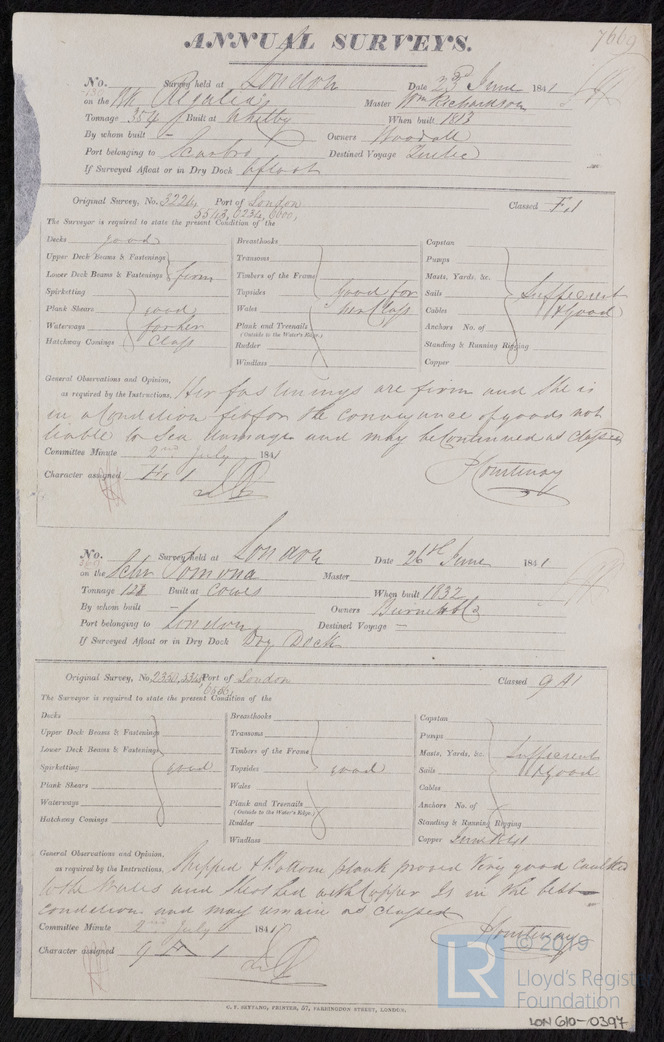 7669
ANNUAL SURVEYS.
No. Survey held at London Date 23rd June 1841
on the Bk Regalia Master Wm Richardson
Tonnage 354 Built at Whitby When built 1813
By whom built - Owners Woodall
Port belonging to Scarbro Destined Voyage Quebec
If Surveyed Afloat or in Dry Dock Afloat
Original Survey, No. 3224 Port of London Classed
5543, 6234, 6600,
The Surveyor is required to state the present Condition of the
Decks good Breasthooks Capstan
Upper Deck Beams & Fastenings Transoms Pumps
Lower Deck Beams & Fastenings firm Timbers of the Frame Masts, Yards, &c.
Spirketting Topsides Good for Sails Sufficient
Plank Shears good Wales her Class Cables & Good
Waterways for her Plank and Treenails Anchors No. of
(Outside to the Water's Edge)
Hatchway Comings Class Rudder Standing & Running Rigging
Windlass Copper
General Observations and Opinion,
as required by the Instructions. Her fastenings are firm and She is
in a Condition fit for the conveyance of goods not
liable to Sea damage and may be Continued as Classed
Committee Minute 2nd July 1841 P Courtenay
Character assigned
No. Survey held at London Date 26th June 1841
on the Schr Pomona Master
Tonnage 128 Built at Cowes When built 1832
By whom built - Owners Burnett & Co
Port belonging to London Destined Voyage -
If Surveyed Afloat or in Dry Dock Dry Dock
Original Survey, No. Port of London Classed 9 A1
The Surveyor is required to state the present Condition of the
Decks Breasthooks Capstan
Upper Deck Beams & Fastenings Transoms Pumps
Lower Deck Beams & Fastenings Timbers of the Frame Masts, Yards, &c. Sufficient
Spirketting good Topsides good Sails & Good
Plank Shears Wales Cables
Waterways Plank and Treenails Anchors No. of
(Outside to the Water's Edge)
Hatchway Comings Rudder Standing & Running Rigging
Windlass Copper June 1841
General Observations and Opinion,
as required by the Instructions. Stripped & Bottom plank proved Very good Caulked
to the Wales and Sheathed with Copper Is in the best
condition and may remain as classed
Committee Minute 2nd July 1841 P Courtenay
Character assigned 9 A 1
C. F. SEYFANG, PRINTER, 57, FARRINGDON STREET, LONDON.
LR © 2019
Lloyd's Register
Foundation
LON 610-0397